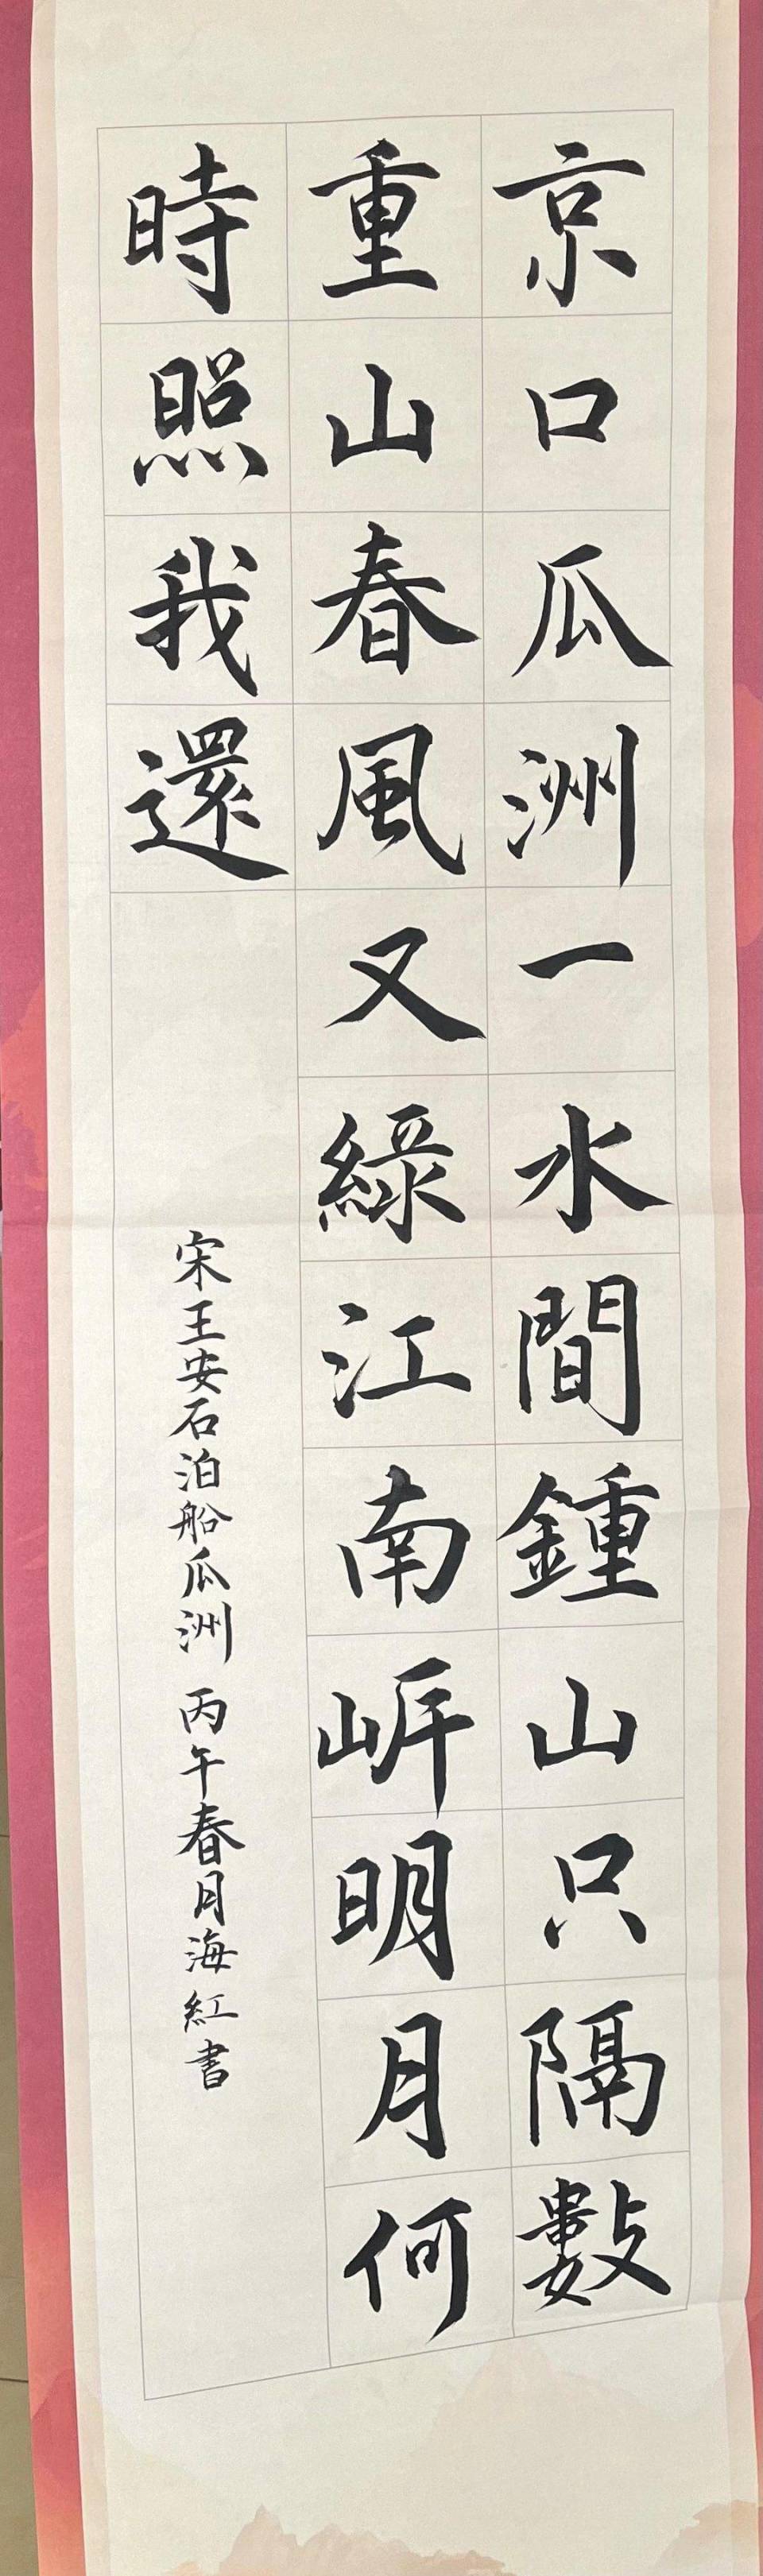 京口瓜洲一水間鍾山只隔數
重山春風又綠江南岸明月何
時照我還
宋王安石泊船瓜洲 丙午春月海紅書